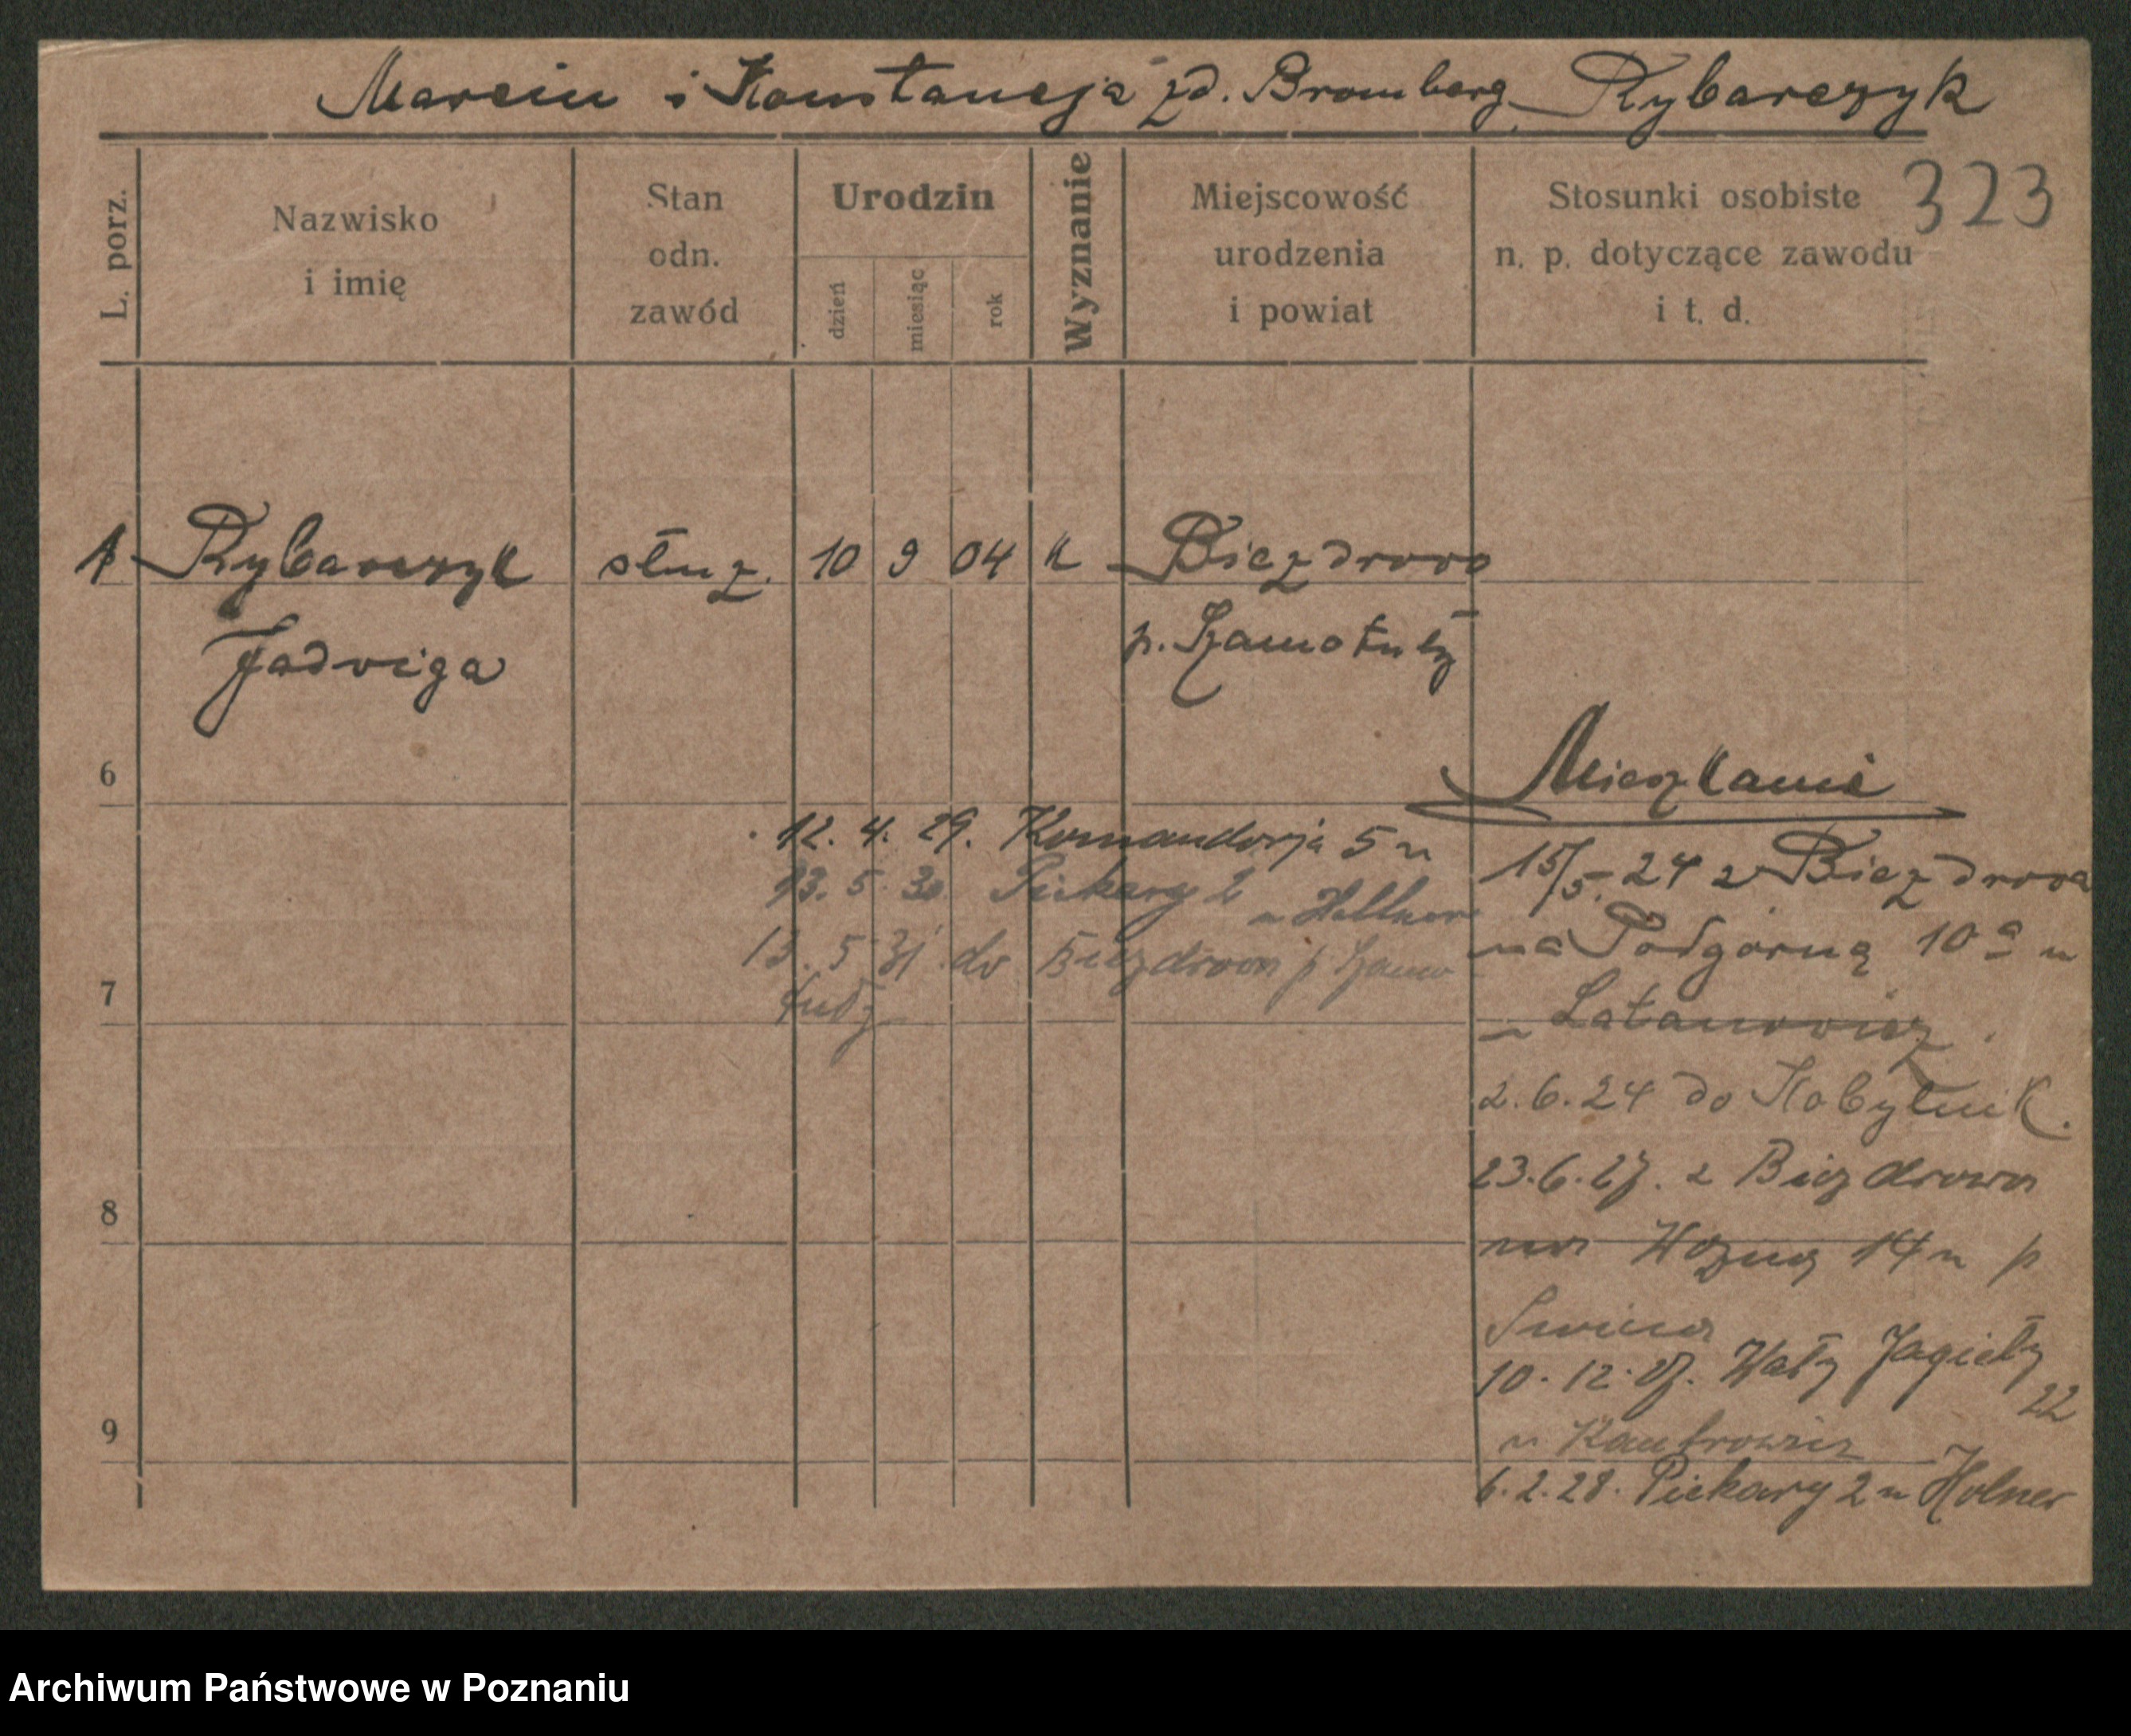 Marcin i Konstancja zd. Bromberg Rybarczyk
323
L. porz.
Nazwisko i imię
Stan odn. zawód
Urodzin
dzień
miesiąc
rok
Wyznanie
Miejscowość urodzenia i powiat
Stosunki osobiste n. p. dotyczące zawodu i t. d.
1 Rybarczyk służ. 10 9 04 k Biezdrowo
Jadwiga p. Szamotuły
6
7
8
9
Mieszkanie
15/5.24 z Biezdrowa
na Podgórną 10a u
Latanowicz
2.6.24 do Kobylnik.
23.6.27. z Biezdrowa
na Woźną 14 u p
10.12.27. Wały Jagiełły
22
u Kantrowicz
6.2.28. Piekary 2 u Holner
12. 4. 29. Komandorja 5 u
13. 5. 30. Piekary 2
u Hellner
13. 5 31 do Biezdrowa p Szamo
tuły
Archiwum Państwowe w Poznaniu